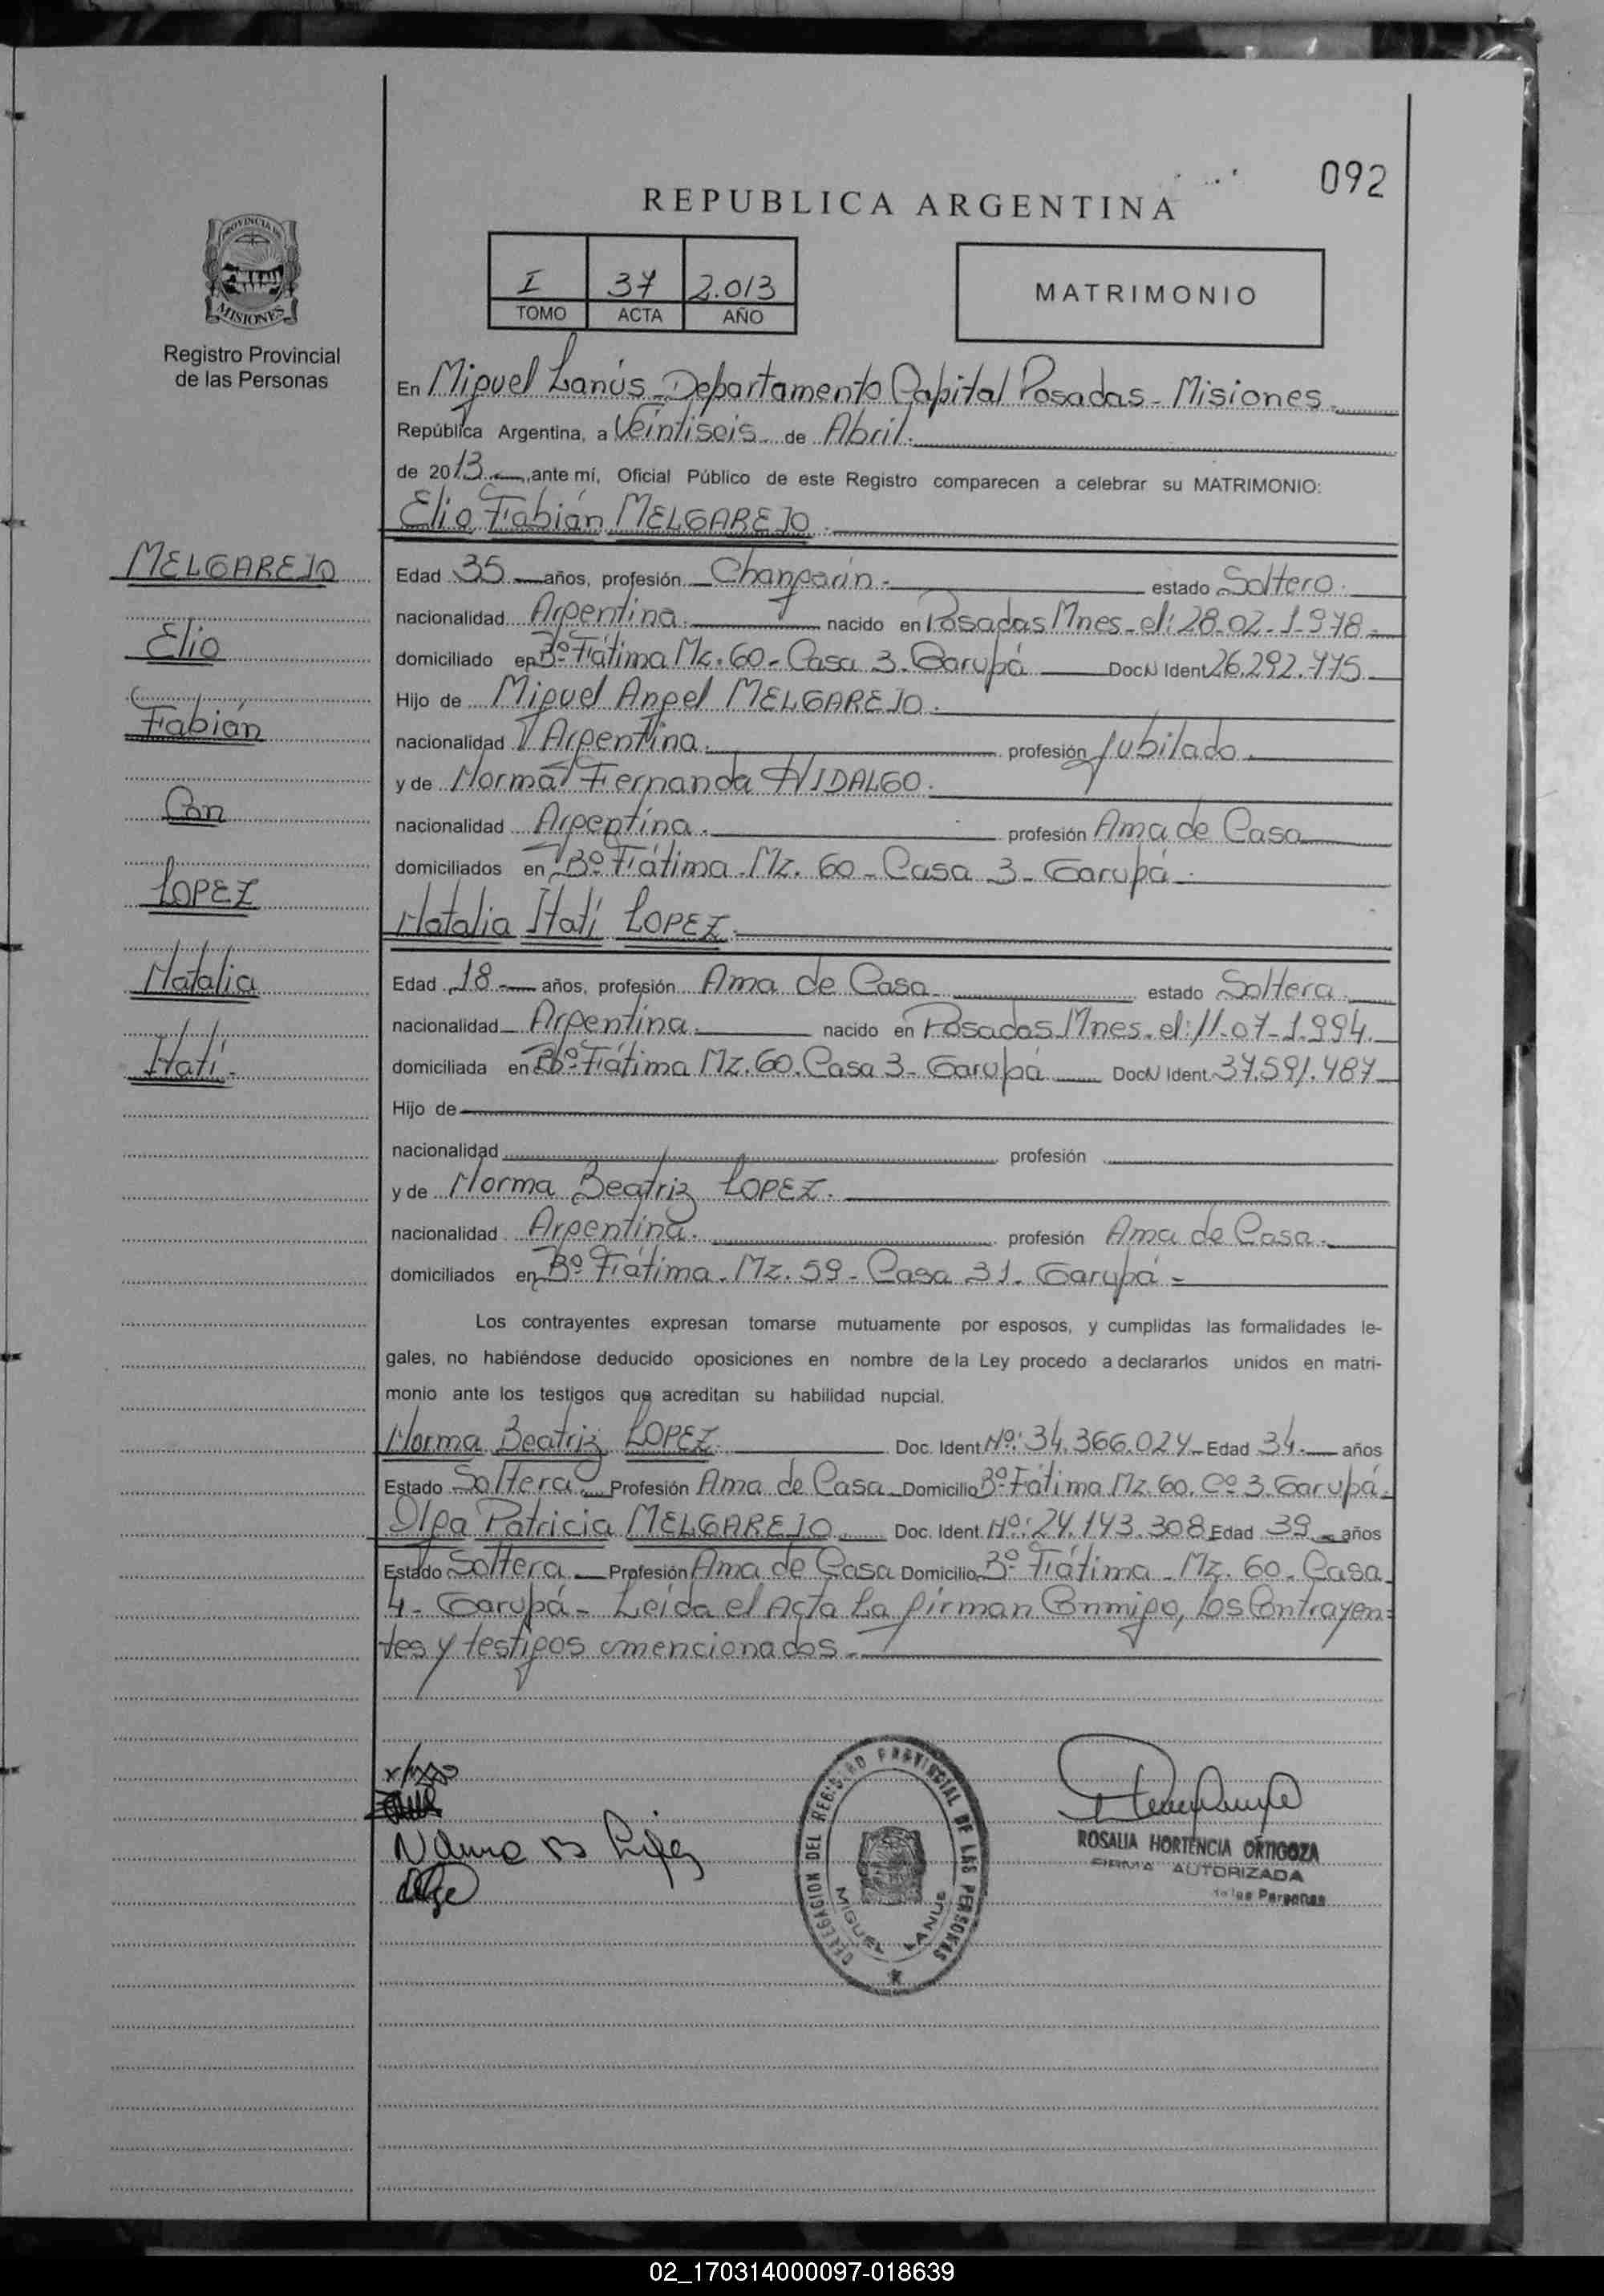 092
REPUBLICA ARGENTINA
PROVINCIA DE
MISIONES
Registro Provincial
de las Personas
I 37 2.013
TOMO ACTA AÑO
MATRIMONIO
En Miguel Lanús - Departamento Capital Posadas - Misiones.
República Argentina, a Veintiseis de Abril.
de 2013 ante mí, Oficial Público de este Registro comparecen a celebrar su MATRIMONIO:
Elio Fabián MELGAREJO.
MELGAREJO
Elio
Fabián
Con
LOPEZ
Natalia
Itatí.
Edad 35 años, profesión Changarín. estado Soltero.
nacionalidad Argentina. nacido en Posadas Mnes. el: 28-02-1.978.
domiciliado en Bº Fátima Mz. 60 - Casa 3 - Garupá Doc N Ident 26.292.775
Hijo de Miguel Angel MELGAREJO.
nacionalidad Argentina. profesión Jubilado.
y de Norma Fernanda HIDALGO.
nacionalidad Argentina. profesión Ama de Casa
domiciliados en Bº Fátima - Mz. 60 - Casa 3 - Garupá.
Natalia Itatí LOPEZ.
Edad 18 años, profesión Ama de Casa estado Soltera.
nacionalidad Argentina. nacido en Posadas Mnes. el: 11-07-1.994.
domiciliada en Bº Fátima Mz. 60. Casa 3 - Garupá Doc N Ident. 37.591.487
Hijo de
nacionalidad profesión
y de Norma Beatriz LOPEZ.
nacionalidad Argentina. profesión Ama de Casa.
domiciliados en Bº Fátima - Mz. 59 - Casa 31 - Garupá -
Los contrayentes expresan tomarse mutuamente por esposos, y cumplidas las formalidades le-
gales, no habiéndose deducido oposiciones en nombre de la Ley procedo a declararlos unidos en matri-
monio ante los testigos que acreditan su habilidad nupcial.
Norma Beatriz LOPEZ. Doc. Ident. Nº: 34.366.024 Edad 34 años
Estado Soltera Profesión Ama de Casa Domicilio Bº Fátima Mz. 60. Cº 3. Garupá.
Olga Patricia MELGAREJO Doc. Ident. Nº: 24.143.308 Edad 39 años
Estado Soltera Profesión Ama de Casa Domicilio Bº Fátima - Mz. 60 - Casa
4 - Garupá - Leida el Acta La firman Conmigo, los Contrayen=
tes y testigos mencionados.
DELEGACION DEL REGISTRO PROVINCIAL DE LAS PERSONAS
MIGUEL LANUS
ROSALIA HORTENCIA ORTIGOZA
FIRMA AUTORIZADA
de las Personas
02_170314000097-018639